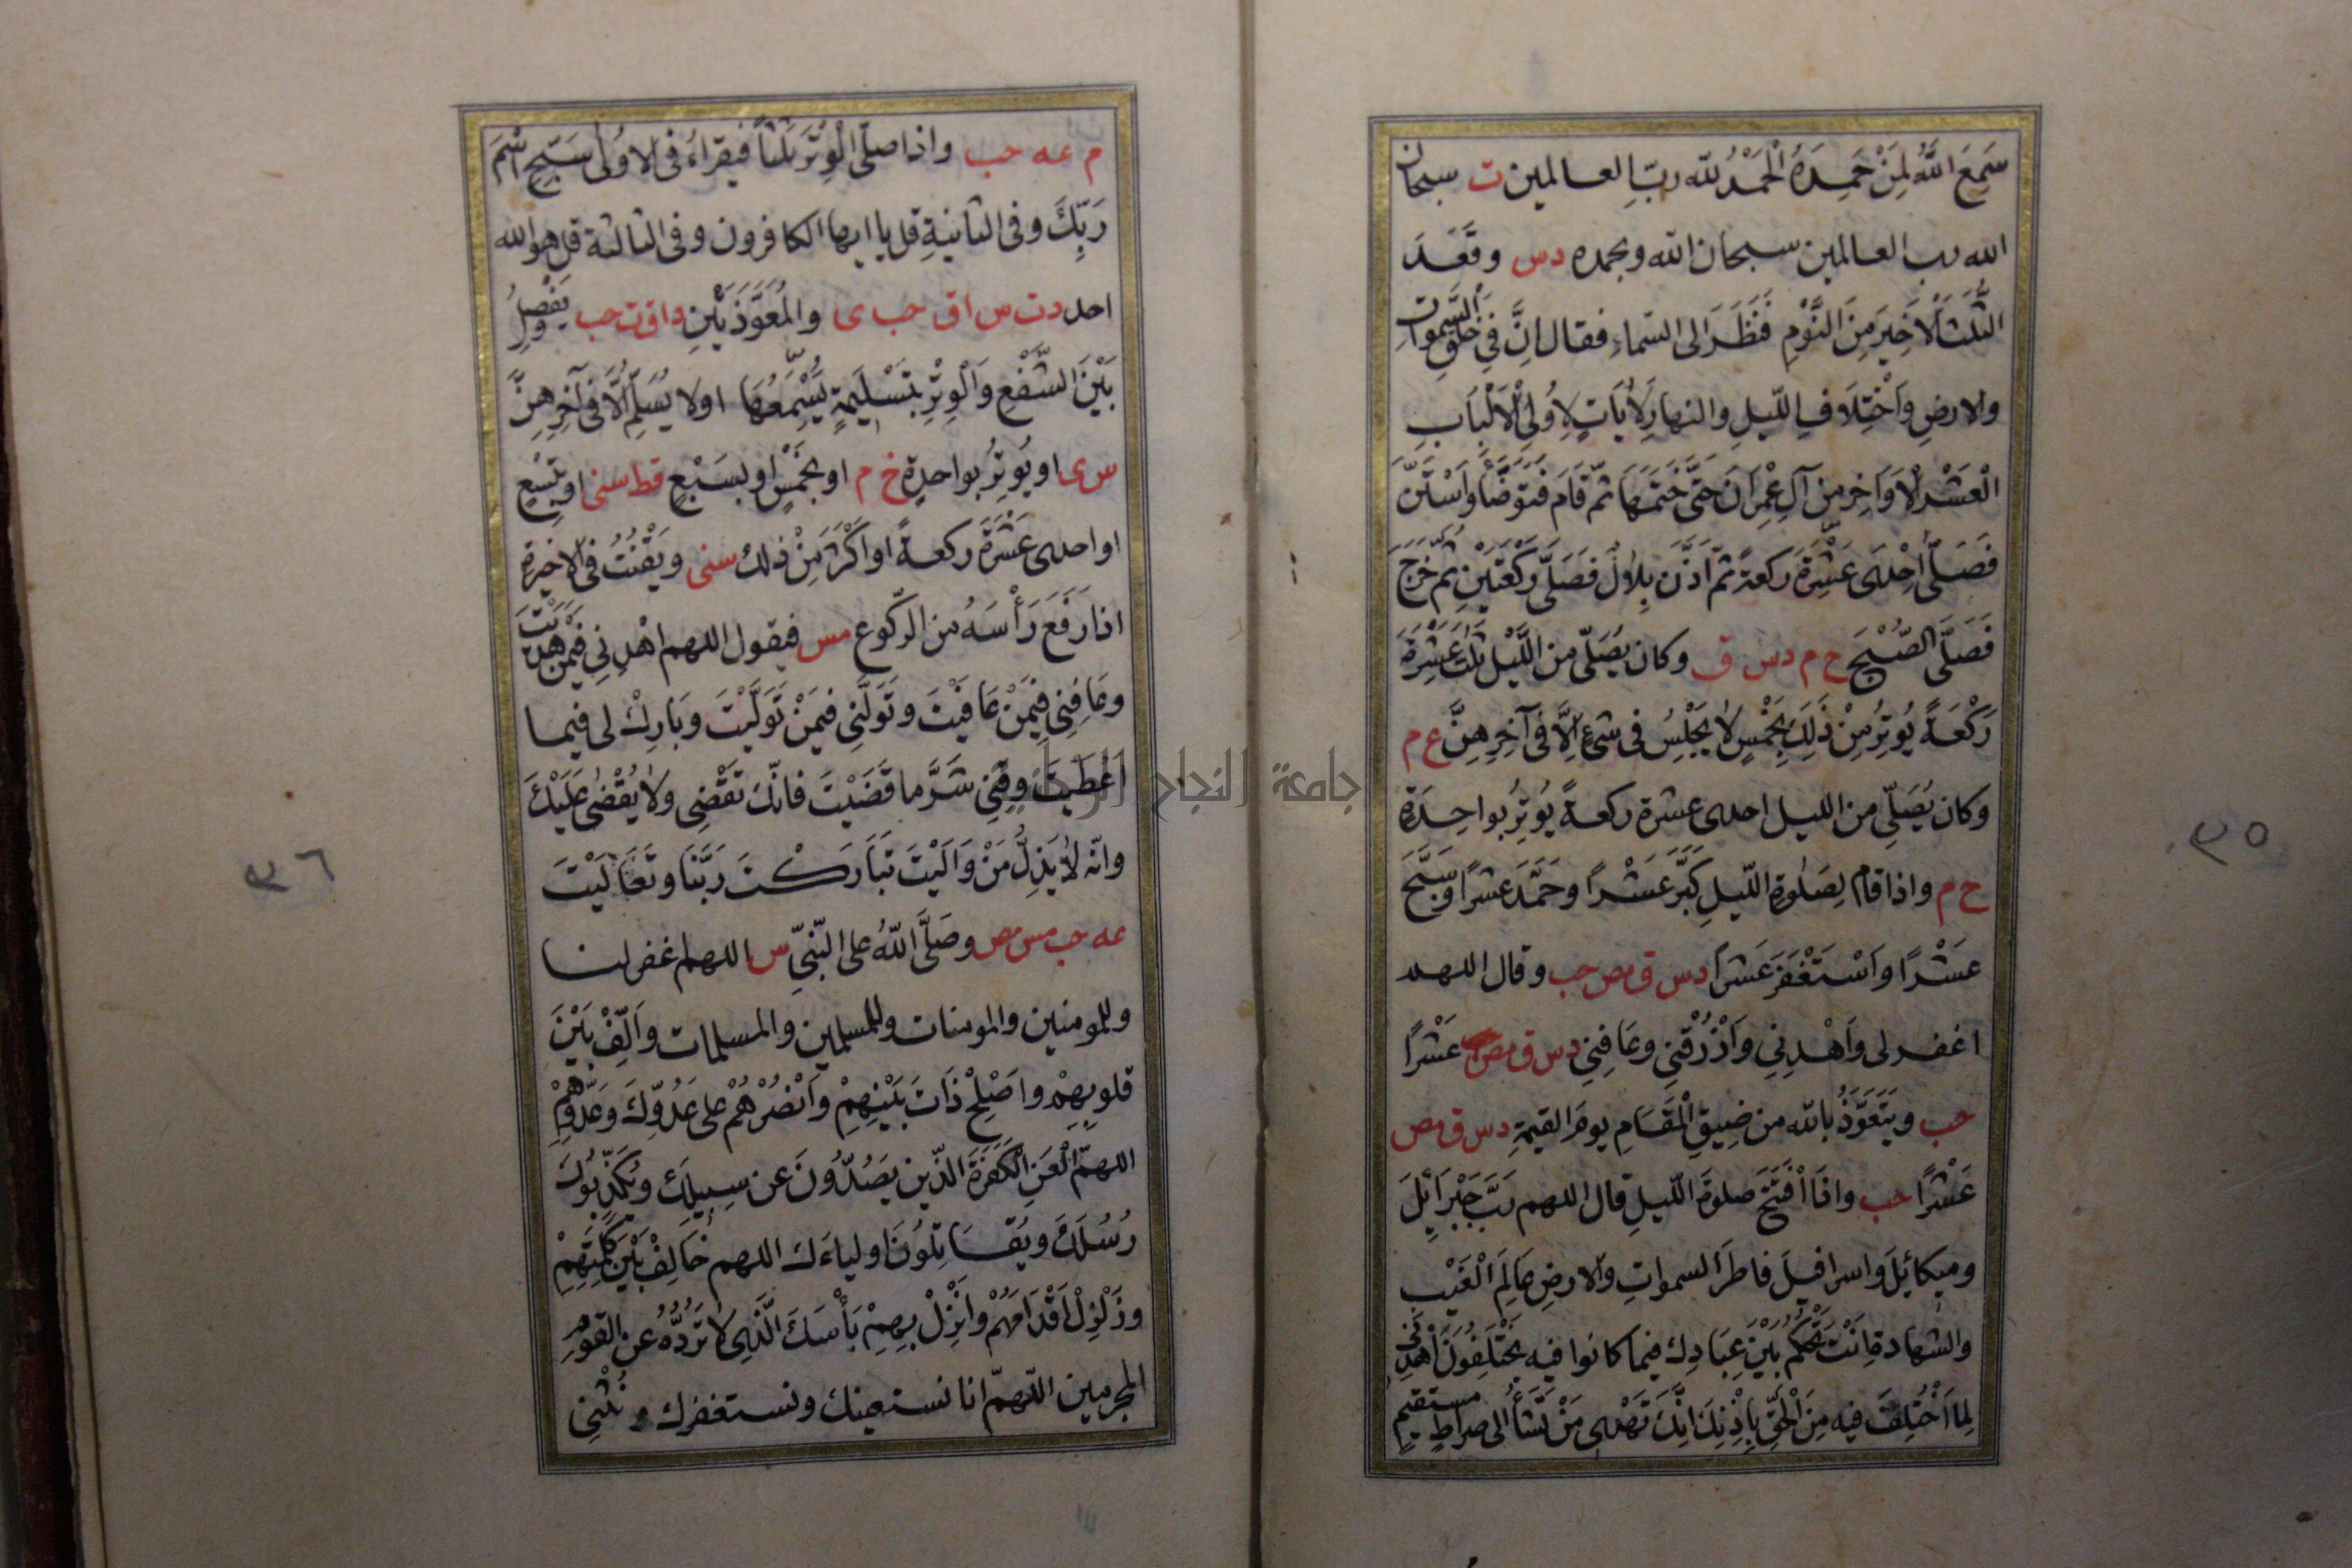 سَمِعَ اللّٰهُ لِمَنْ حَمِدَهُ اَلْحَمْدُ للّٰه ربِّ العالمين ت سبحان
الله رب العالمين سبحان اللّه وبحمده د س وقَعَدَ
الثُّلُثَ الْاَخِيرَ مِنَ النَّوْمِ فَنَظَرَ الى السّماءِ فقال اِنَّ فِي خَلْقِ السَّمٰوَاتِ
والارضِ وَاخْتِلَافِ اللّيلِ والنهارِ لَاٰيَاتٍ لِاُولِي الْاَلْبَابِ
الْعَشْرَ الْاَوَاخِرَ مِنَ آلِ عِمْرَانَ حَتّٰى خَتَمَهَا ثمّ قَامَ فتوضّأَ وَاسْتَنَّ
فَصَلّٰى اِحْدَى عَشْرَةَ رَكعةً ثمّ اَذَّنَ بِلَالٌ فَصَلّٰى رَكْعَتَيْنِ ثم خَرَجَ
فَصَلَّى الصُّبْحَ خ م د س ق وكان يُصَلّى من اللَّيْلِ ثَلٰثَ عَشْرَةَ
رَكْعَةً يُوتِرُ مِنْ ذٰلِكَ بِخَمْسٍ لَا يَجْلِسُ فى شىءٍ اِلَّا فى آخِرِهِنَّ خ م
وكان يُصَلّى من الليل احدى عشرة ركعةً يُوتِرُ بواحِدَةٍ
خ م واذا قام لِصَلٰوةِ اللّيلِ كَبَّرَ عَشْرًا وحَمَّدَ عشرًا وسَبَّحَ
عَشْرًا وَاسْتَغْفَرَ عَشْرًا د س ق مص حب وقال اللهم
اغفر لى وَاهْدِنِي وَارْزُقْنِي وعَافِنِي د س ق مص عَشْرًا
حب ويَتَعَوَّذُ بالله من ضِيقِ الْمَقَامِ يومَ القيمةِ د س ق مص
عَشْرًا حب واذا افْتَتَحَ صلوةَ اللّيلِ قال اللهم رَبَّ جَبْرَائِلَ
وميكائِلَ واسرافيلَ فاطرَ السموات والارضِ عَالِمَ الْغَيْبِ
والشهادة اَنْتَ تَحْكُمُ بَيْنَ عِبَادِك فيما كانوا فيه يَخْتَلِفُونَ اهْدِنِى
لِمَا اخْتُلِفَ فيه مِنَ الْحَقِّ بِاِذْنِكَ اِنَّكَ تَهْدِى مَنْ تَشَاءُ الى صراطٍ مستقيمٍ
٣٥
م عه حب واذا صلّى الْوِتْرَ ثَلٰثاً فيقراءُ فى الاُولٰى سَبِّحِ اسْمَ
رَبِّكَ وفى الثانيةِ قل يا ايها الكافرون وفى الثالثة قل هو الله
احد د ت س ا ق حب ى والْمُعَوَّذَتَيْنِ د ا ق ت حب ويَفْصِلُ
بَيْنَ الشَّفْعِ وَالْوِتْرِ بتَسْلِيمَةٍ يُسْمِعُهَا اولا يُسَلِّمُ اِلَّا فى آخِرِهِنَّ
س ى او يُوتِرُ بواحدةٍ خ م او بخَمْسٍ او بسَبْعٍ قط سنى او بِتِسْعٍ
او احدى عَشْرَةَ ركعةً او اَكْثَرَ مِنْ ذلك سنى ويَقْنُتُ فى الاخيرة
اذا رَفَعَ رَأْسَهُ من الرّكوع مس فيقول اللهم اهْدِنِي فيمن هَدَيْتَ
وعَافِنِي فيمَنْ عَافَيْتَ وتَوَلَّنِي فيمَنْ تَوَلَّيْتَ وبَارِكْ لى فيما
اَعْطَيْتَ وقِنِي شَرَّ ما قَضَيْتَ فانّك تَقْضِى ولا يُقْضٰى عَلَيْكَ
وانّه لَا يَذِلُّ مَنْ وَالَيْتَ تَبَارَكْتَ رَبَّنَا وتَعَالَيْتَ
عه حب مس مص وصَلَّى اللّٰهُ على النّبيِّ س اللهم اغفر لنا
وللمومنين والمومنات وللمسلمين والمسلمات واَلِّفْ بَيْنَ
قلوبِهِمْ واَصْلِحْ ذَاتَ بَيْنِهِمْ وَانْصُرْهُمْ على عَدُوِّكَ وعَدُوِّهِمْ
اللهمّ الْعَنِ الْكَفَرَةَ الّذين يَصُدُّونَ عن سبيلِكَ ويُكَذِّبُونَ
رُسُلَكَ ويُقَاتِلُونَ اولياءَك اللهم خَالِفْ بَيْنَ كَلِمَتِهِمْ
وزَلْزِلْ اَقْدَامَهُمْ واَنْزِلْ بِهِمْ بَأْسَكَ الَّذِى لَا تَرُدُّهُ عن القوم
المجرمين اللّهمّ انا نستعينك ونستغفرك و نُثْنِى
٣٦
جامعة النجاح الوطنية